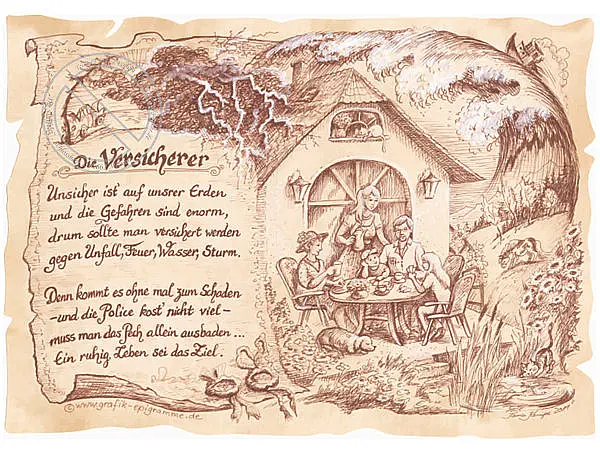 Die Versicherer
Unsicher ist auf unsrer Erden
und die Gefahren sind enorm,
drum sollte man versichert werden
gegen Unfall, Feuer, Wasser, Sturm.
Denn kommt es ohne mal zum Schaden
-und die Police kost' nicht viel-
muss man das Pech allein ausbaden...
Ein ruhig Leben sei das Ziel.
©www.grafik-epigramme.de